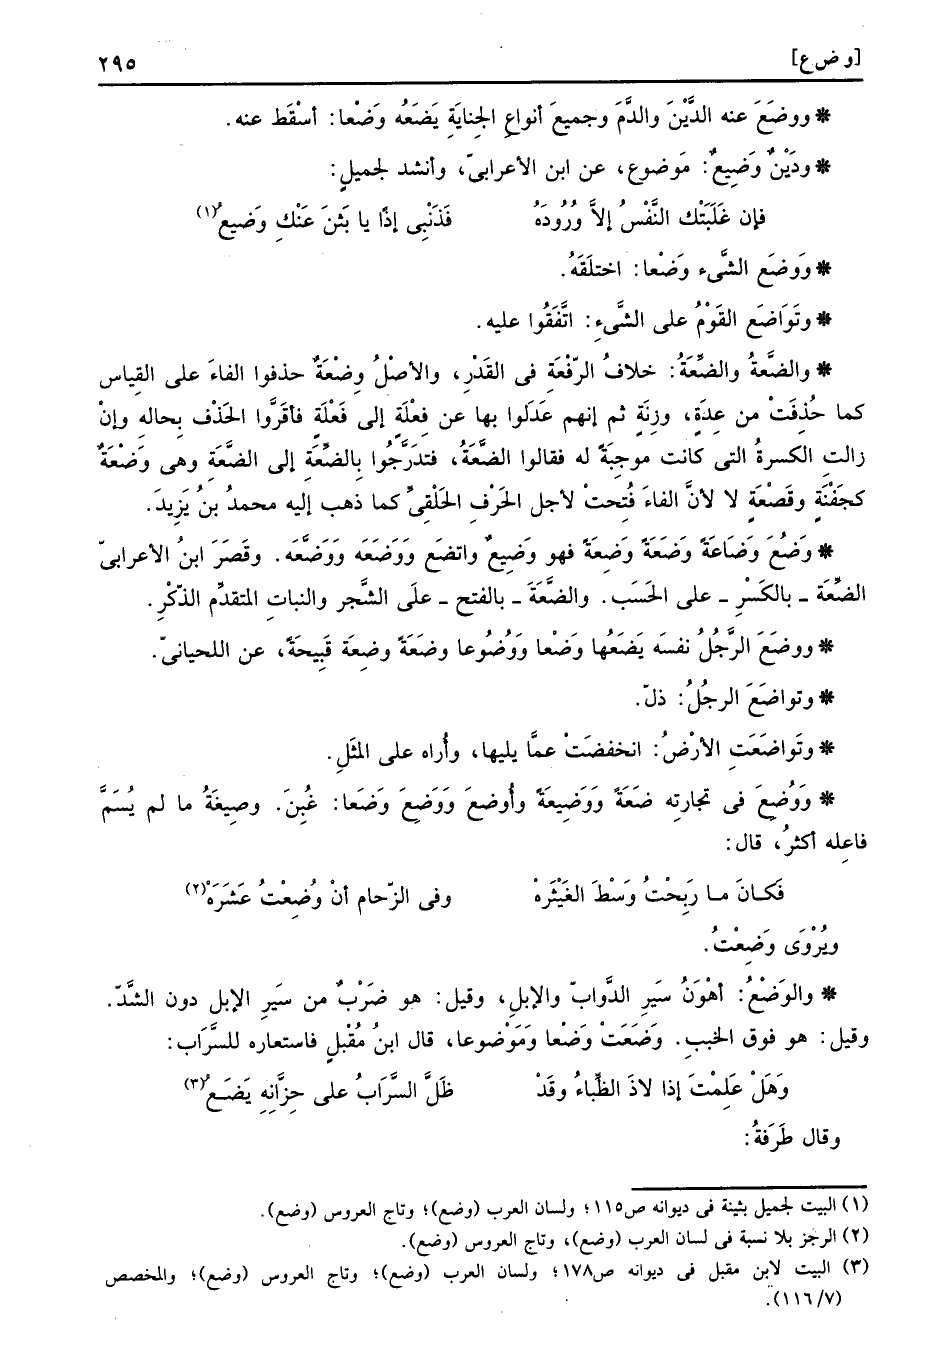 [و ض ع] ٢٩٥
* ووضَعَ عنه الدَّيْنَ والدَّمَ وجميعَ أنواعِ الجِنايَةِ يَضَعُه وَضْعا: أسْقَط عنه.
* ودَيْنٌ وَضِيعٌ: مَوضوع، عن ابن الأعرابىّ، وأنشد لجميلٍ:
فإن غَلَبَتْك النَّفْسُ إلاَّ وُرُودَهُ فَذَنْبِى إذًا يا بَثنَ عَنْكِ وَضيعُ(١)
* وَوَضَع الشَّىء وَضْعا: اختلَقَهُ.
* وتَوَاضَع القَوْمُ على الشَّىءِ: اتَّفَقُوا عليه.
* والضَّعةُ والضِّعَةُ: خلافُ الرّفْعَة فى القَدْرِ، والأصْلُ وِضْعَةٌ حذفوا الفاءَ على القِياس
كما حُذِفَتْ من عِدَةٍ، وزِنَةٍ ثم إنهم عَدَلوا بها عن فِعْلَةٍ إلى فَعْلَةٍ فأقرَّوا الحَذْف بِحاله وإنْ
زالتِ الكسرةُ التى كانت موجِبَةً له فقالوا الضَّعَةُ، فتدَرَّجُوا بِالضِّعَةِ إلى الضَّعَةِ وهى وَضْعَةٌ
كجَفْنَةٍ وقَصْعَةٍ لا لأنَّ الفاءَ فُتحتْ لأجل الحَرْفِ الحَلْقِىِّ كما ذهب إليه محمدُ بنُ يَزِيدَ.
* وَضُع وَضَاعَةً وَضَعَةً وَضِعَةً فهو وَضِيعٌ واتضَع وَوَضَعَه وَوَضَّعَه. وقَصَرَ ابنُ الأعرابىّ
الضِّعَة ـ بالكَسْرِ ـ على الحَسَب. والضَّعَةَ ـ بالفتح ـ علَى الشَّجر والنباتِ المتقدِّم الذّكْرِ.
* ووضَعَ الرَّجُلُ نفسَه يَضَعُها وَضْعا وَوُضُوعا وضَعَةً وضِعة قَبيحَةً، عن اللحيانىّ.
* وتواضَعَ الرجلُ: ذلّ.
* وتَواضَعَتِ الأرْضُ: انخفضَتْ عمَّا يليها، وأُراه على المثَلِ.
* وَوُضِعَ فى تجارته ضَعَةً وَوَضيعَةً وأُوضعَ وَوَضِعَ وَضَعا: غُبِنَ. وصيغَةُ ما لم يُسَمَّ
فاعِله أكثرُ، قال:
فَكـانَ مـا رَبِحْتُ وَسْطَ الغَيْثَرهْ وفى الزّحام أنْ وُضِعْتُ عَشَرَهْ(٢)
ويُرْوَى وَضِعْتُ.
* والوَضْعُ: أهْوَنُ سَيرِ الدَّوابّ والإبلِ، وقيل: هو ضَرْبٌ من سَيرِ الإبل دون الشَّدّ.
وقيل: هو فوق الخبب. وَضَعَتْ وَضْعا ومَوْضوعا، قال ابنُ مُقْبلٍ فاستعاره للسَّرَاب:
وَهَلْ عَلِمْتَ إذا لاذَ الظِّباءُ وقَدْ ظَلَّ السَّرَابُ على حِزَّانِهِ يَضَـعُ(٣)
وقال طَرَفةُ:
(١) البيت لجميل بثينة فى ديوانه ص١١٥؛ ولسان العرب (وضع)؛ وتاج العروس (وضع).
(٢) الرجز بلا نسبة فى لسان العرب (وضع)، وتاج العروس (وضع).
(٣) البيت لابن مقبل فى ديوانه ص١٧٨؛ ولسان العرب (وضع)؛ وتاج العروس (وضع)؛ والمخصص
(٧/ ١١٦).